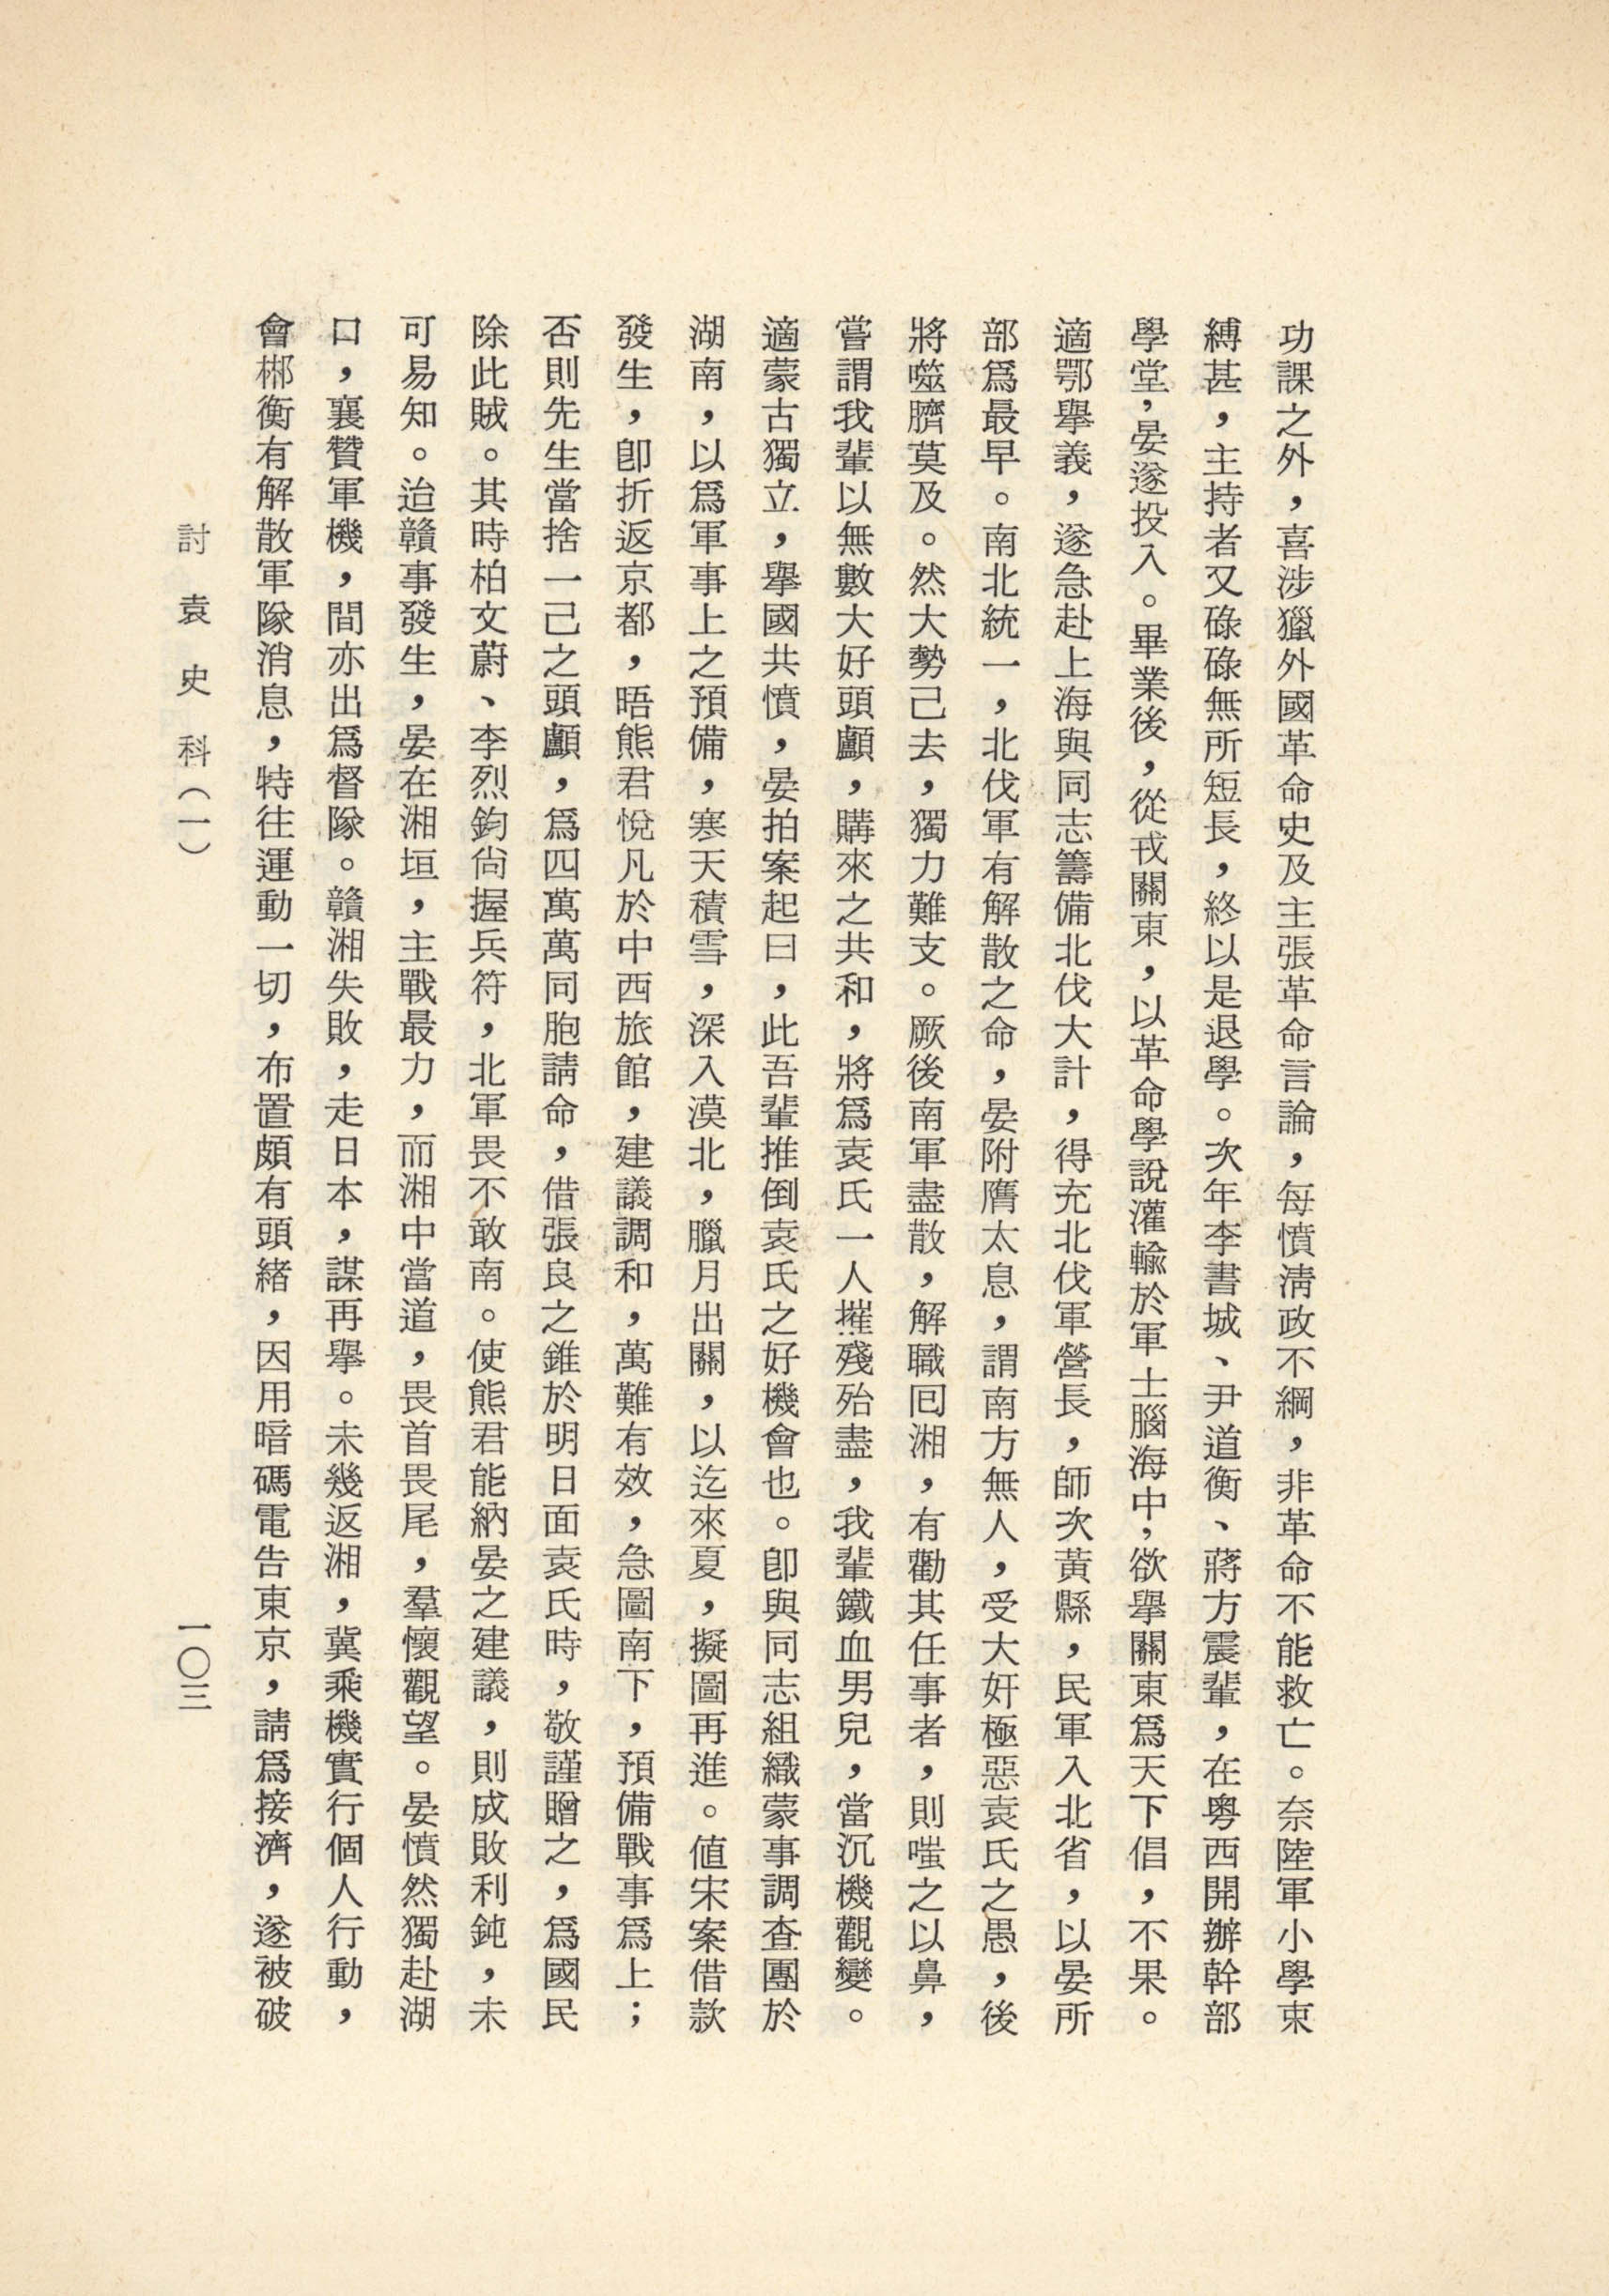 功課之外，喜涉獵外國革命史及主張革命言論，每憤淸政不綱，非革命不能救亡。奈陸軍小學束
縛甚，主持者又碌碌無所短長，終以是退學。次年李書城、尹道衡、蔣方震輩，在粤西開辦幹部
學堂，晏遂投入。畢業後，從戎關東，以革命學說灌輸於軍士腦海中，欲舉關東爲天下倡，不果。
適鄂舉義，遂急赴上海與同志籌備北伐大計，得充北伐軍營長，師次黃縣，民軍入北省，以晏所
部爲最早。南北統一，北伐軍有解散之命，晏附膺太息，謂南方無人，受大奸極惡袁氏之愚，後
將噬臍莫及。然大勢己去，獨力難支。厥後南軍盡散，解職囘湘，有勸其任事者，則嗤之以鼻，
嘗謂我輩以無數大好頭顱，購來之共和，將爲袁氏一人摧殘殆盡，我輩鐵血男兒，當沉機觀變。
適蒙古獨立，舉國共憤，晏拍案起曰，此吾輩推倒袁氏之好機會也。卽與同志組織蒙事調查團於
湖南，以爲軍事上之預備，寒天積雪，深入漠北，臘月出關，以迄來夏，擬圖再進。値宋案借款
發生，卽折返京都，晤熊君悅凡於中西旅館，建議調和，萬難有效，急圖南下，預備戰事爲上；
否則先生當捨一己之頭顱，爲四萬萬同胞請命，借張良之錐於明日面袁氏時，敬謹贈之，爲國民
除此賊。其時柏文蔚、李烈鈞尙握兵符，北軍畏不敢南。使熊君能納晏之建議，則成敗利鈍，未
可易知。迨贛事發生，晏在湘垣，主戰最力，而湘中當道，畏首畏尾，羣懷觀望。晏憤然獨赴湖
口，襄贊軍機，間亦出爲督隊。贛湘失敗，走日本，謀再舉。未幾返湘，冀乘機實行個人行動，
會郴衡有解散軍隊消息，特往運動一切，布置頗有頭緒，因用暗碼電告東京，請爲接濟，遂被破
討袁史科（一）
一〇三